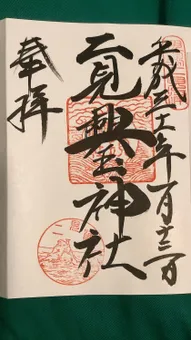 平成三十一年一月十三日
二見興玉神社
奉拝